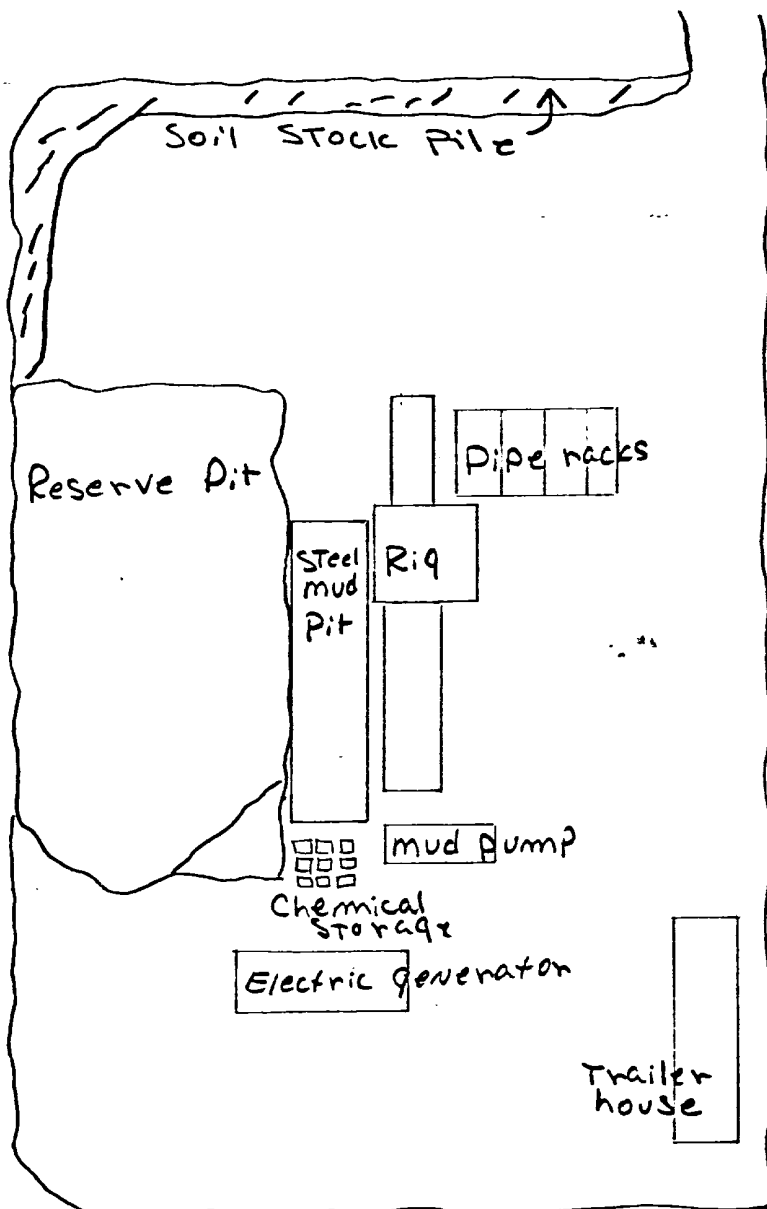 Soil Stock Pile
Pipe racks
Reserve Pit
Steel
mud
Pit
Rig
mud pump
Chemical
Storage
Electric generator
Trailer
house